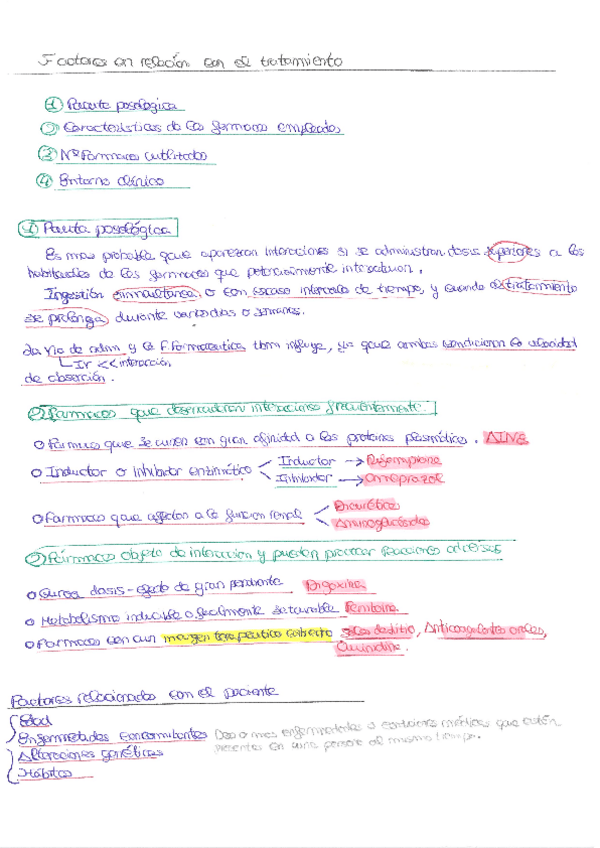 Factores en relación con el tratamiento
① Pauta posológica
② Características de los farmacos empleados
③ Nº Farmacos utilizados
④ Entorno clínico
① Pauta posológica
Es mas probable que aparezcan interacciones si se administran dosis superiores a las
habituales de los farmacos que potencialmente interactuan.
Ingestión simultanea o con escaso intervalo de tiempo, y cuando el tratamiento
se prolonga durante varios dias o semanas.
La vía de admin y la F. Farmaceutica tbm influye, ya que ambas condicionan la velocidad
↳ IV << interacción
de absorción.
② Farmacos que desencadenan interacciones frecuentemente.
○ Farmacos que se unen con gran afinidad a las proteinas plasmáticas. AINE
○ Inductor o inhibidor enzimático < Inductor → Rifampicina
Inhibidor → Omeprazol
○ Farmacos que afectan a la funcion renal < Diuréticos
Aminoglucósidos
② Fármacos objeto de interaccion y pueden provocar reacciones adversas
○ Curva dosis-efecto de gran pendiente Digoxina
○ Metabolismo inducible o facilmente saturable Fenitoina
○ Farmacos con un margen terapeutico estrecho Sales de litio, Anticoagulantes orales,
Quinidina.
Factores relacionados con el paciente
Edad
Enfermedades concomitantes Dos o mas enfermedades o condiciones médicas que están
presentes en una persona al mismo tiempo.
Alteraciones genéticas
Hábitos